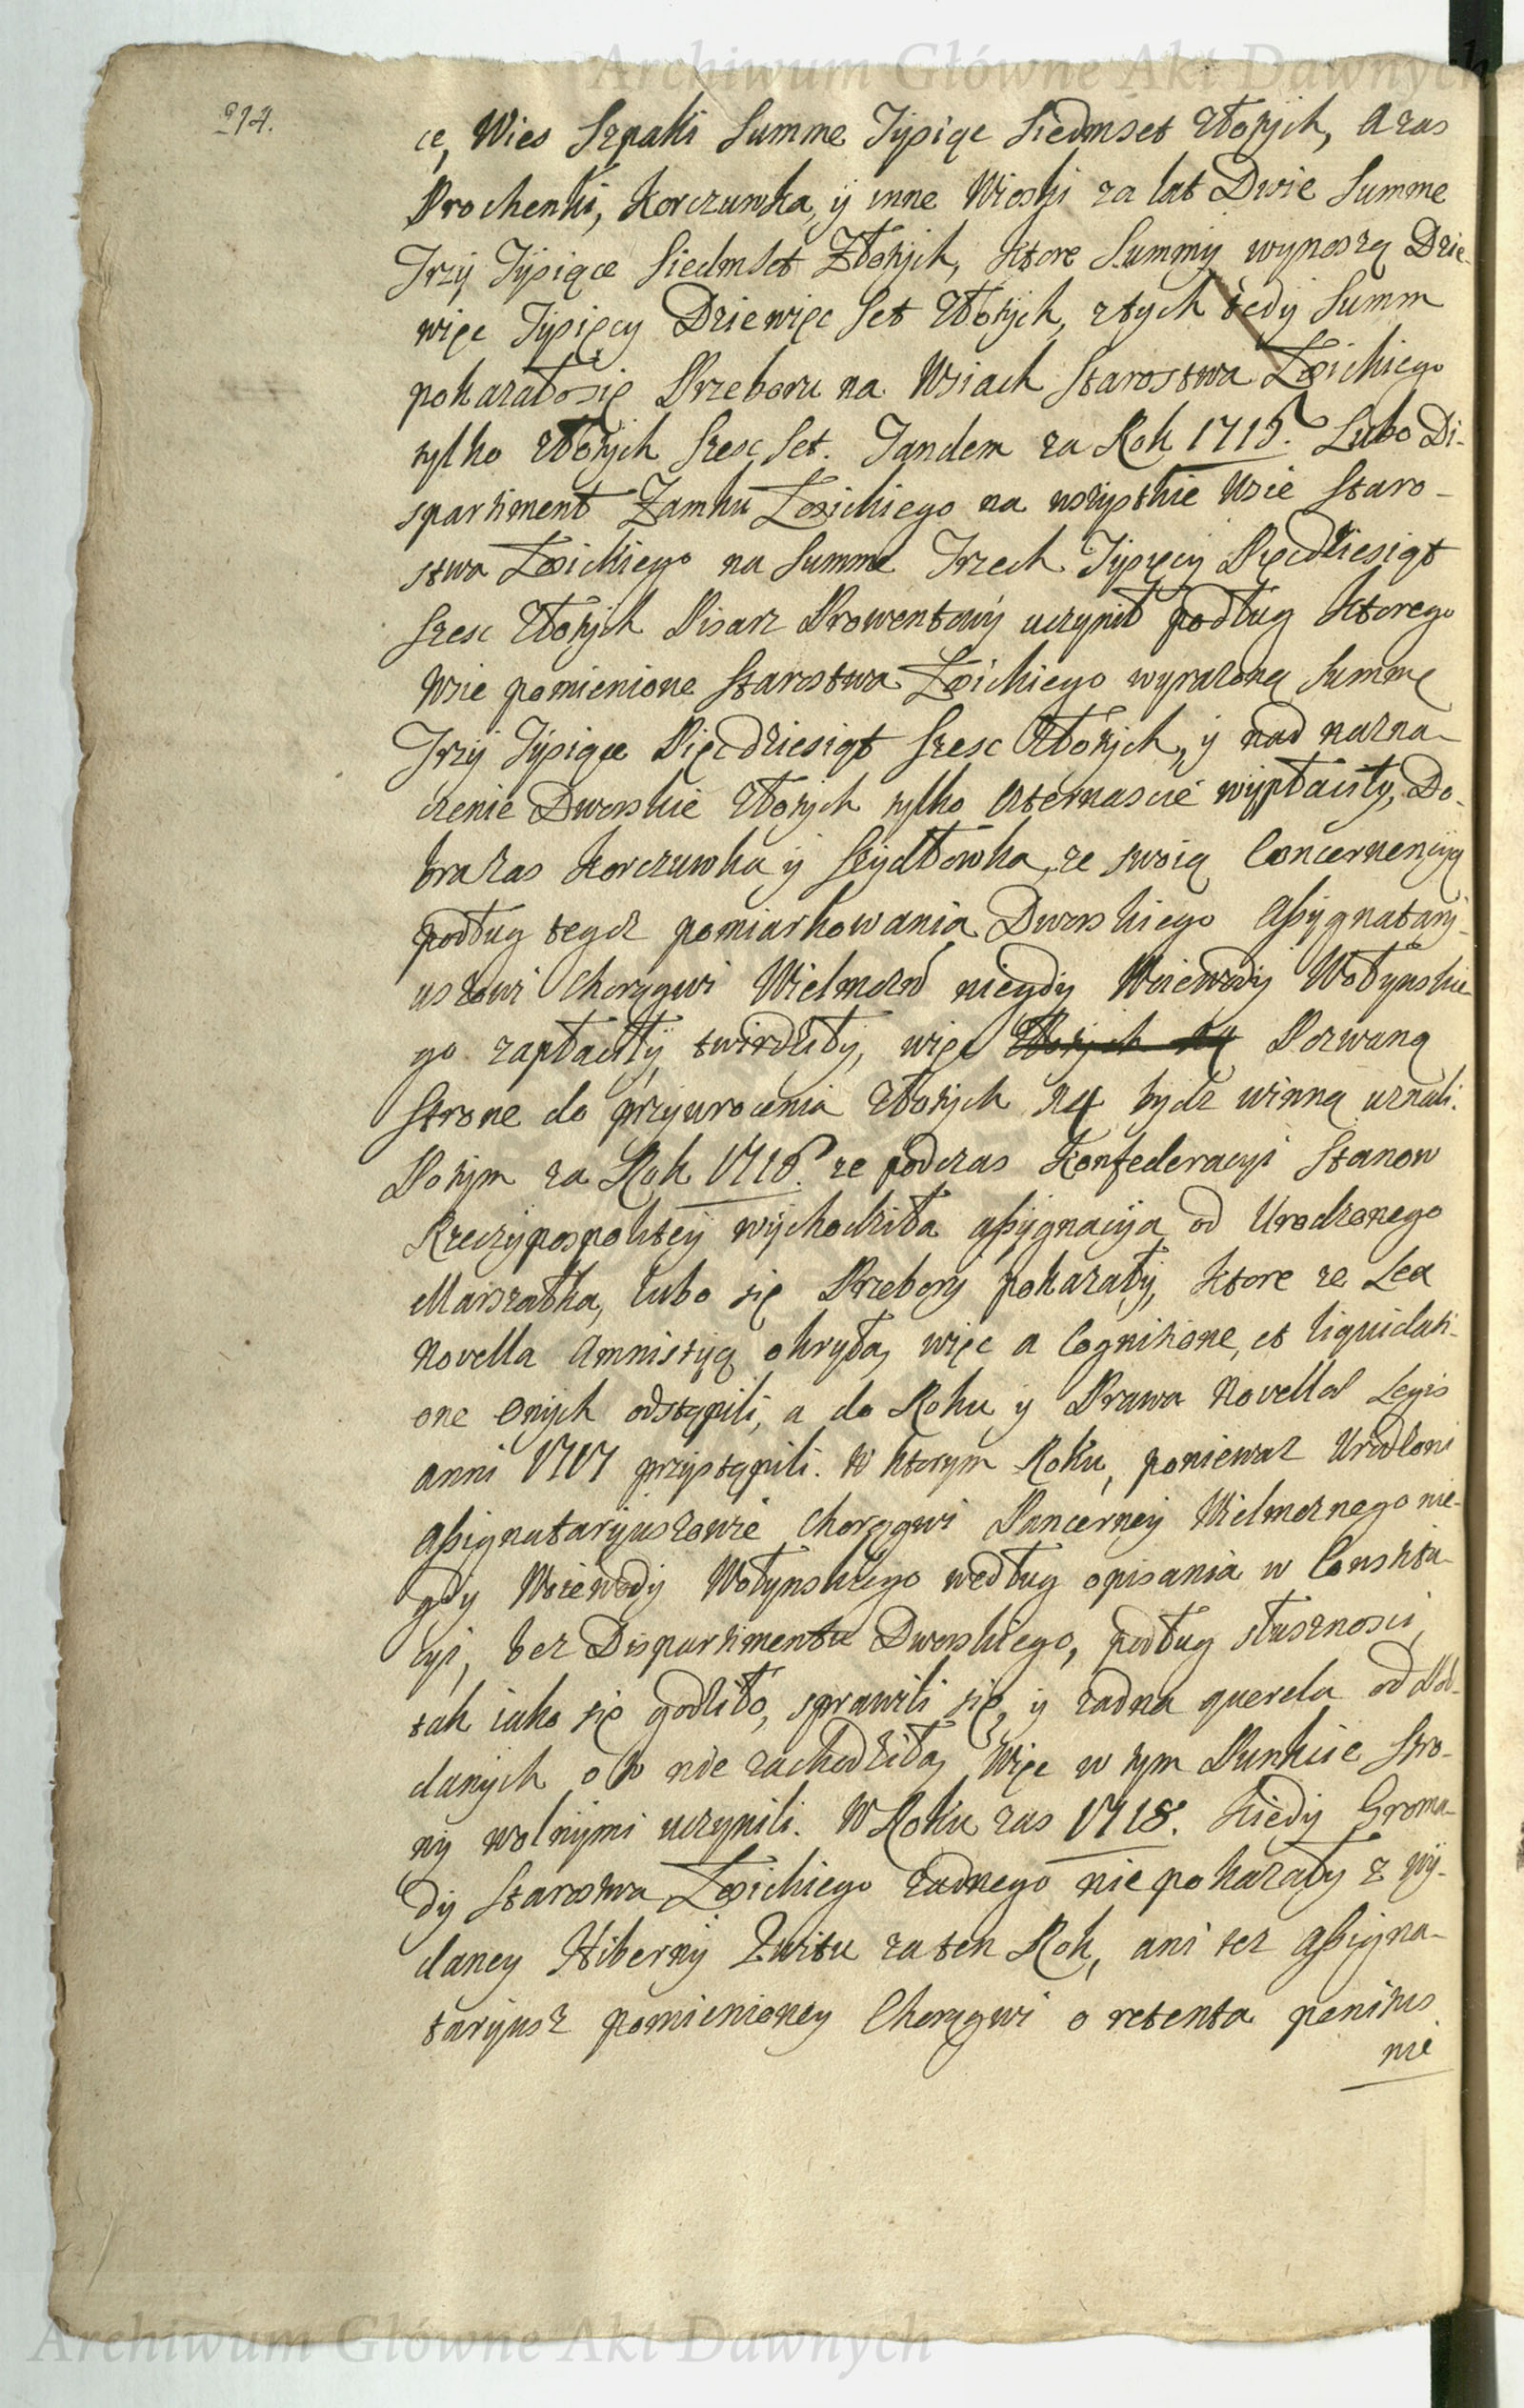 Archiwum Główne Akt Dawnych
214.
ce, Wies Szpaki Summe Tysiąc Siedmset Złotych, a zas
Prochenki, Korczuwka, y inne Wioski za lat Dwie Summe
Trzy Tysiące Siedmset Złotych, Ktore Summy wynoszą Dzie-
więc Tysięcy Dziewięc Set Złotych, z tych tedy Summ
pokazało się Przeboru na Wsiach Starostwa Łosickiego
tylko Złotych Szesc Set. Tandem za Rok 1715. Lubo Di-
spartiment Zamku Łosickiego na wszystkie Wsie Staro-
stwa Łosickiego na Summe Trzech Tysięcy Pięcdziesiąt
Szesc Złotych Pisarz Prowentowy uczynił podług Ktorego
Wsie pomienione Starostwa Łosickiego wyrazoną Summę
Trzy Tysiące Pięcdziesiąt Szesc Złotych, y nad nazna-
czenie Dworskie Złotych tylko Czternascie wypłaciły, Do-
bra zas Korczuwka y Szydłowka, ze swoią Concernencyą
podług tegoz pomiarkowania Dworskiego Assygnatary-
uszowi Chorągwi Wielmozn niegdy Woiewody Wołynskie-
go zapłaciły, twirdziły, więc Złotych 14 Pozwaną
Strone do przywrocenia Złotych 14 bydz winną uznali.
Potym za Rok 1716. ze podczas Konfederacyi Stanow
Rzeczypospolitey wychodziła assygnacyja od Urodzonego
Marszałka, lubo się Przebory pokazały, Ktore ze Lex
Novella Amnistyą okryła, więc a Cognitione, et liquidati-
one Onych odstąpili, a do Roku y Prawa Novellæ Legis
anni 1717 przystąpili. W ktorym Roku, poniewaz Urodzoni
Assignataryuszowie Chorągwi Pancerney Wielmoznego nie-
gdy Woiewody Wołynskiego według opisania w Constitu-
cyi, bez Dispartimentu Dworskiego, podług słusznosci,
tak iako się godziło, sprawili się, y zadna querela od Pod-
danych o to nie zachodziła, Więc w tym Punkcie Stro-
ny wolnymi uczynili. W Roku zas 1718. Kiedy Groma-
dy Starostwa Łosickiego zadnego nie pokazały z wy-
daney Hiberny Kwitu za ten Rok, ani tez Assigna-
taryusz pomienioney Chorągwi o retenta penitus
nie
Archiwum Główne Akt Dawnych